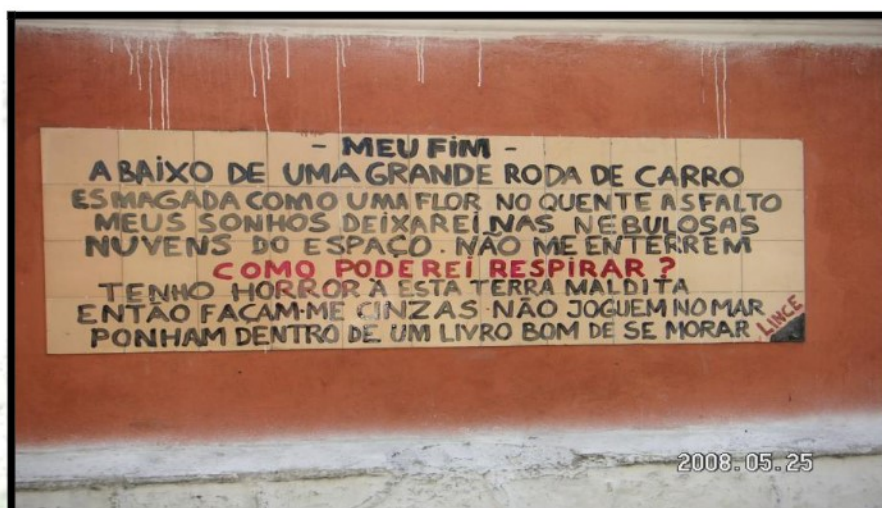 - MEU FIM -
ABAIXO DE UMA GRANDE RODA DE CARRO
ESMAGADA COMO UMA FLOR NO QUENTE ASFALTO
MEUS SONHOS DEIXAREI NAS NEBULOSAS
NUVENS DO ESPAÇO. NÃO ME ENTERREM
COMO PODEREI RESPIRAR?
TENHO HORROR À ESTA TERRA MALDITA
ENTÃO FAÇAM-ME CINZAS NÃO JOGUEM NO MAR
PONHAM DENTRO DE UM LIVRO BOM DE SE MORAR
LINCE
2008.05.25